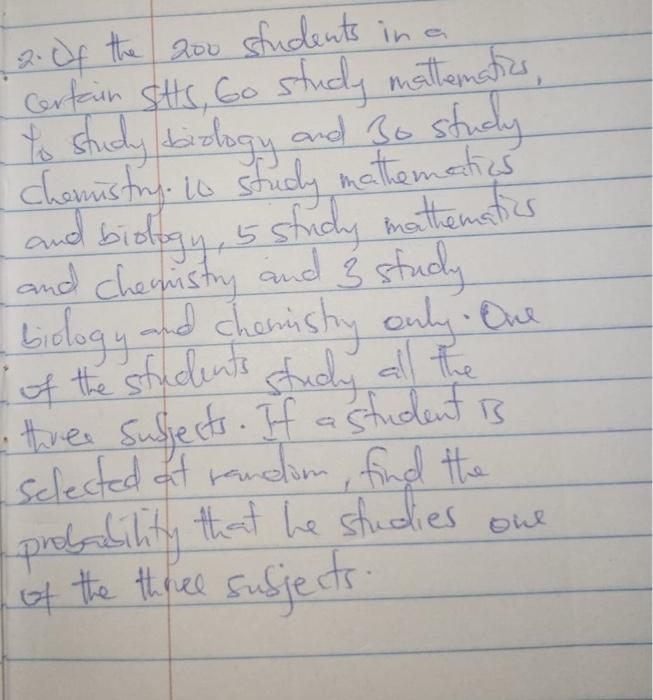 2. Of the 200 students in a
certain SHS, 60 study mathematics,
40 study biology and 30 study
chemistry. 10 study mathematics
and biology, 5 study mathematics
and chemistry and 3 study
biology and chemistry only. One
of the students study all the
three subjects. If a student is
selected at random, find the
probability that he studies one
of the three subjects.